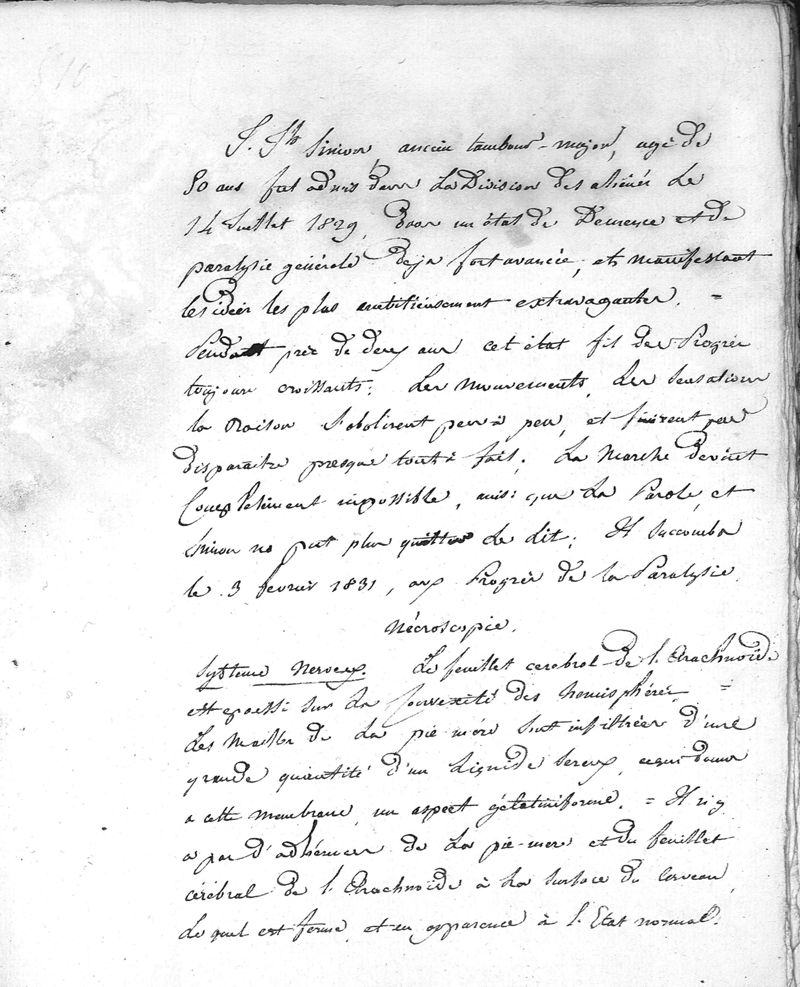 J. Jh Simon, ancien tambour-major, agé de
50 ans fut admis dans la Division des aliénés le
14 Juillet 1829, dans un état de Démence et de
paralysie générale déja fort avancée, et manifestant
les idées les plus ambitieusement extravagantes. =
Pendant près de deux ans cet état fit des Progrès
toujours croissants: les mouvements, les sensations
la Raison s'abolirent peu à peu, et finirent par
disparaitre presque tout à fait; la marche devint
Complètement impossible, ainsi que la Parole, et
Simon ne put plus quitter le lit; Il succomba
le 3 fevrier 1831, aux Progrès de la Paralysie.
Nécroscopie.
Système Nerveux. Le feuillet cérébral de l'Arachnoïde
est épaissi sur la Convexité des hémisphères. =
Les Mailles de la pie-mère sont infiltrées d'une
grande quantité d'un Liquide Sereux, ce qui donne
a cette membrane un aspect gélatiniforme. = Il n'y
a pas d'adhérences de la pie-mère et du feuillet
cérébral de l'Arachnoïde à la surface du Cerveau,
le quel est ferme, et en apparence à l'Etat normal.